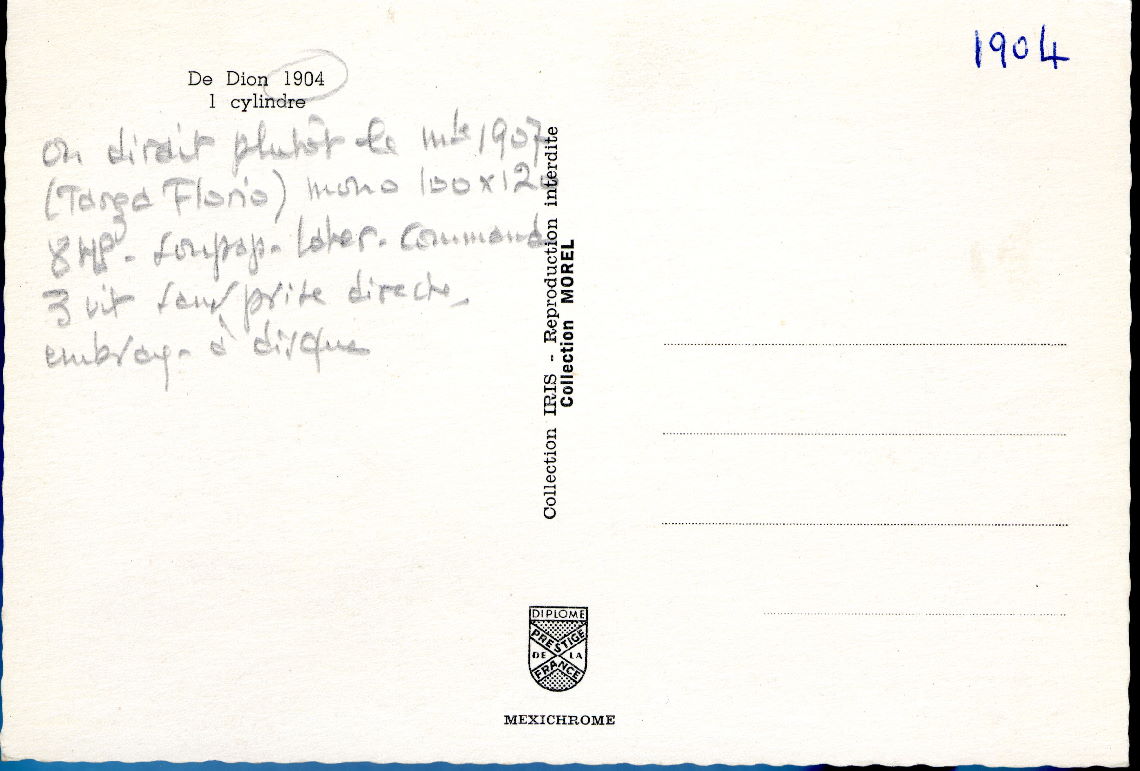 1904
De Dion 1904
1 cylindre
on dirait plutôt le mle 1907
(Targa Florio) mono 100 x 120
8 HP. soupap. later. command
3 vit sans prise directe
embray. à disque
Collection IRIS - Reproduction interdite
Collection MOREL
DIPLOME
PRESTIGE
DE LA
FRANCE
MEXICHROME